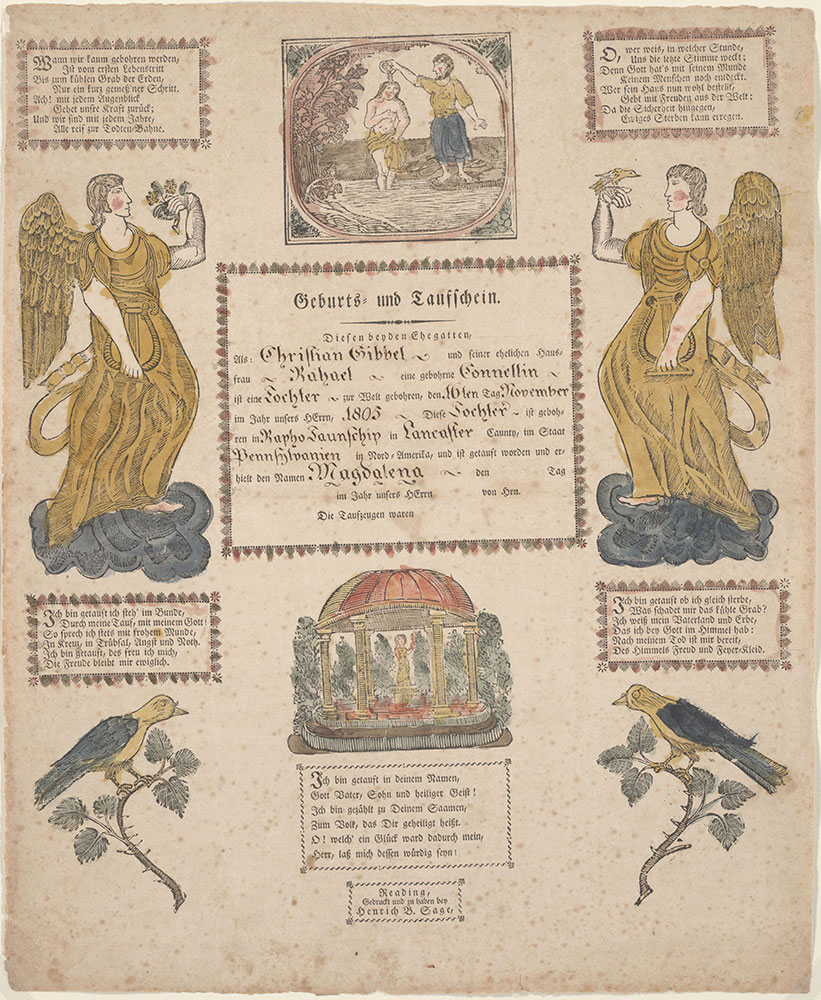 Wann wir kaum gebohren werden,
Ist vom ersten Lebenstritt
Bis zum kühlen Grab der Erden,
Nur ein kurz gemeß'ner Schritt.
Ach! mit jedem Augenblick
Gehet unsre Kraft zurück;
Und wir sind mit jedem Jahre,
Alle reif zur Todten-Bahne.
O, wer weis, in welcher Stunde,
Uns die letzte Stimme weckt;
Denn Gott hat's mit seinem Munde
Keinem Menschen noch endeckt.
Wer sein Haus nun wohl bestellt,
Geht mit Freuden aus der Welt:
Da die Sicherheit hingegen,
Ewiges Sterben kann erregen.
Geburts- und Taufschein.
Diesen beyden Ehegatten,
Als: Christian Gibbel und seiner ehelichen Haus-
frau Rahael eine gebohrne Connellin
ist eine Tochter zur Welt gebohren, den 16ten Tag November
im Jahr unsers HErrn, 1805 Diese Tochter ist geboh-
ren in Rapho Taunschip in Lancaster Caunty, im Staat
Pennsylvanien in Nord-Amerika, und ist getauft worden und er-
hielt den Namen Magdalena den Tag
im Jahr unsers HErrn von Hrn.
Die Taufzeugen waren
Ich bin getauft ich steh' im Bunde,
Durch meine Tauf, mit meinem Gott!
So sprech ich stets mit frohem Munde,
In Kreuz, in Trübsal, Angst und Noth.
Ich bin getauft, des freu ich mich,
Die Freude bleibt mir ewiglich.
Ich bin getauft ob ich gleich sterbe,
Was schadet mir das kühle Grab?
Ich weiß mein Vaterland und Erbe,
Das ich bey Gott im Himmel hab:
Nach meinem Tod ist mir bereit,
Des Himmels Freud und Feyer-Kleid.
Ich bin getauft in deinem Namen,
Gott Vater, Sohn und heiliger Geist!
Ich bin gezählt zu Deinem Saamen,
Zum Volk, das Dir geheiligt heißt.
O! welch' ein Glück ward dadurch mein,
Herr, laß mich dessen würdig seyn!
Reading,
Gedruckt und zu haben bey
Henrich B. Sage,